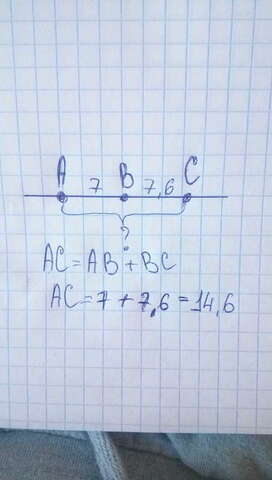 A 7 B 7,6 C
?
AC = AB + BC
AC = 7 + 7,6 = 14,6